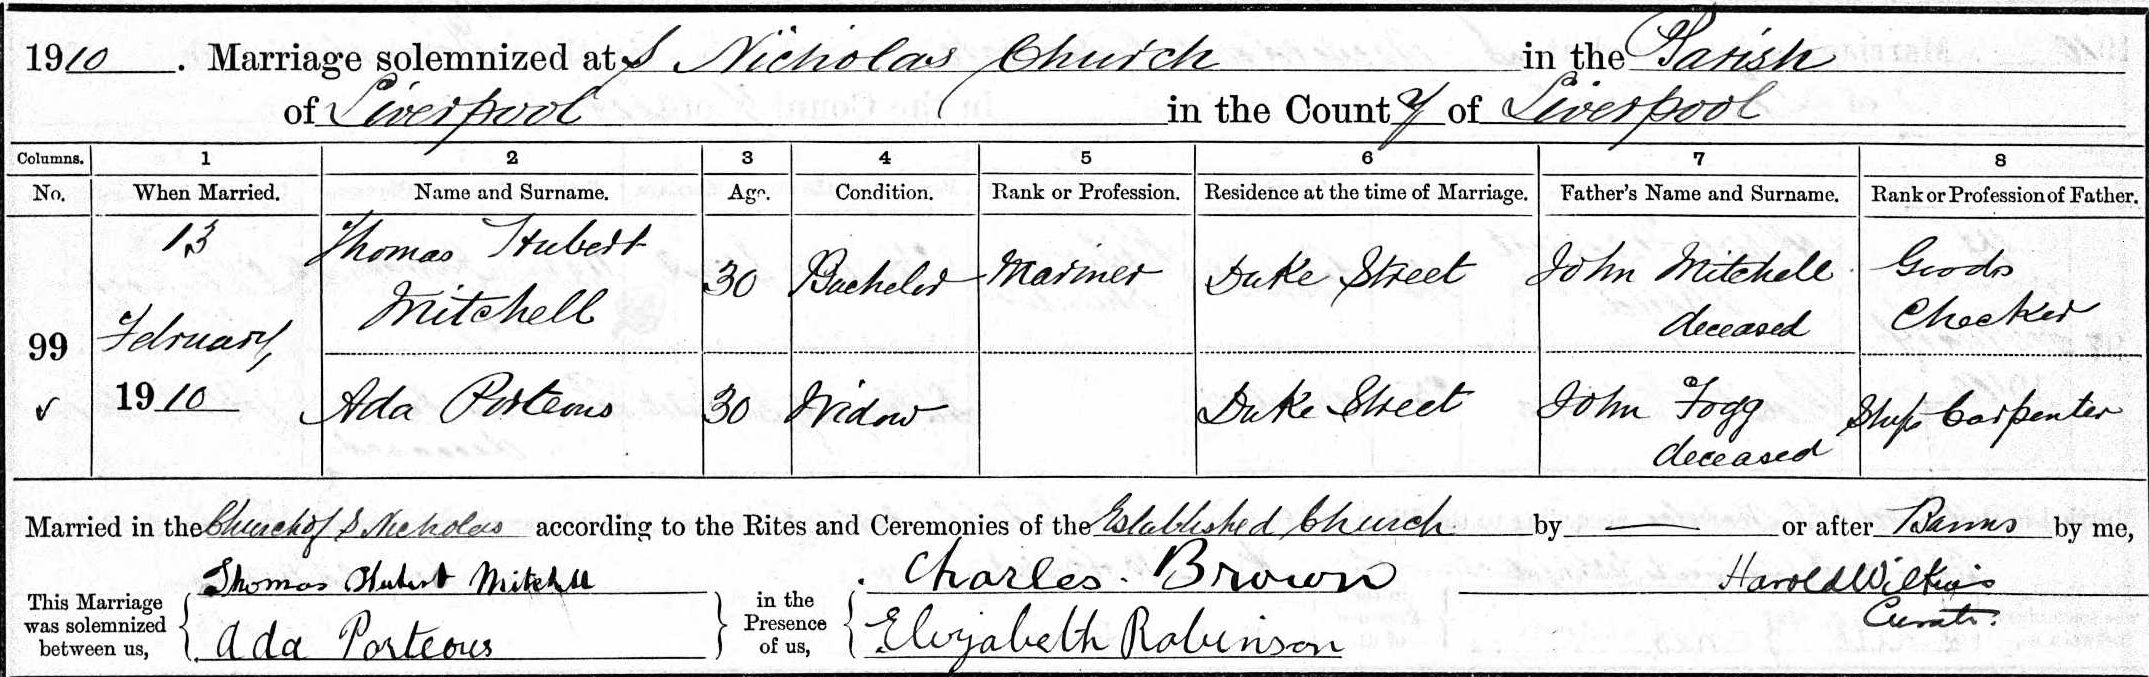 1910. Marriage solemnized at S Nicholas Church in the Parish
of Liverpool in the County of Liverpool
Columns. 1 2 3 4 5 6 7 8
No. When Married. Name and Surname. Age. Condition. Rank or Profession. Residence at the time of Marriage. Father's Name and Surname. Rank or Profession of Father.
99 13 February, 1910
Thomas Hubert Mitchell 30 Bachelor Mariner Duke Street John Mitchell deceased Goods Checker
✓ Ada Porteous 30 Widow Duke Street John Fogg deceased Ship Carpenter
Married in the Church of S Nicholas according to the Rites and Ceremonies of the Established Church by — or after Banns by me,
This Marriage was solemnized between us, { Thomas Hubert Mitchell } in the Presence of us, { Charles. Brown Harold Wilkins
Ada Porteous Elizabeth Robinson Curate.